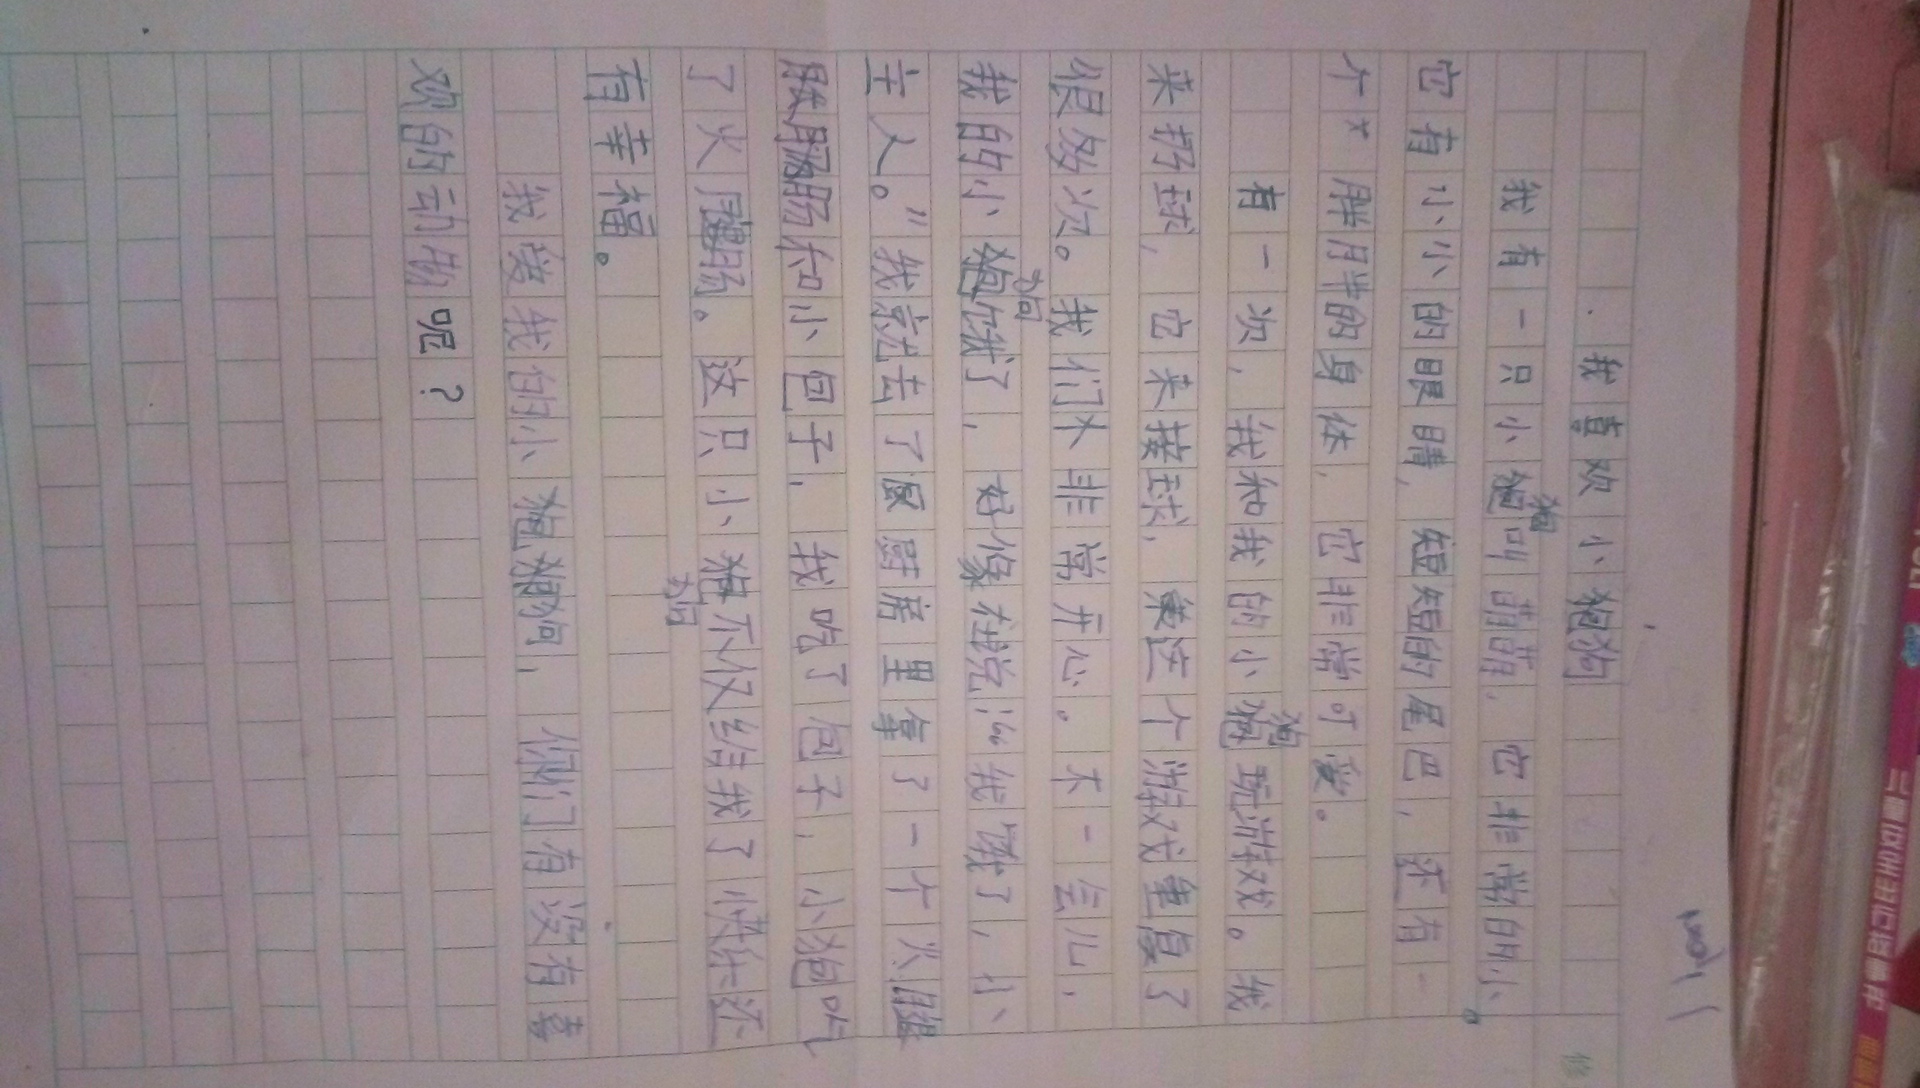 我喜欢小狗
我有一只小狗叫萌萌，它非常的小，
它有小小的眼睛，短短的尾巴，还有一
个胖胖的身体，它非常可爱。
有一次，我和我的小狗玩游戏。我
来扔球，它来接球，这个游戏重复了
很多次。我们外非常开心。不一会儿，
我的小狗饿了，好像在说：“我饿了，小
主人。”我就去了厨房里拿了一个火腿
肠和小包子，我吃了包子，小狗吃
了火腿肠。这只小狗不仅给我了快乐还
有幸福。
我爱我的小狗，你们有没有喜
欢的动物呢？